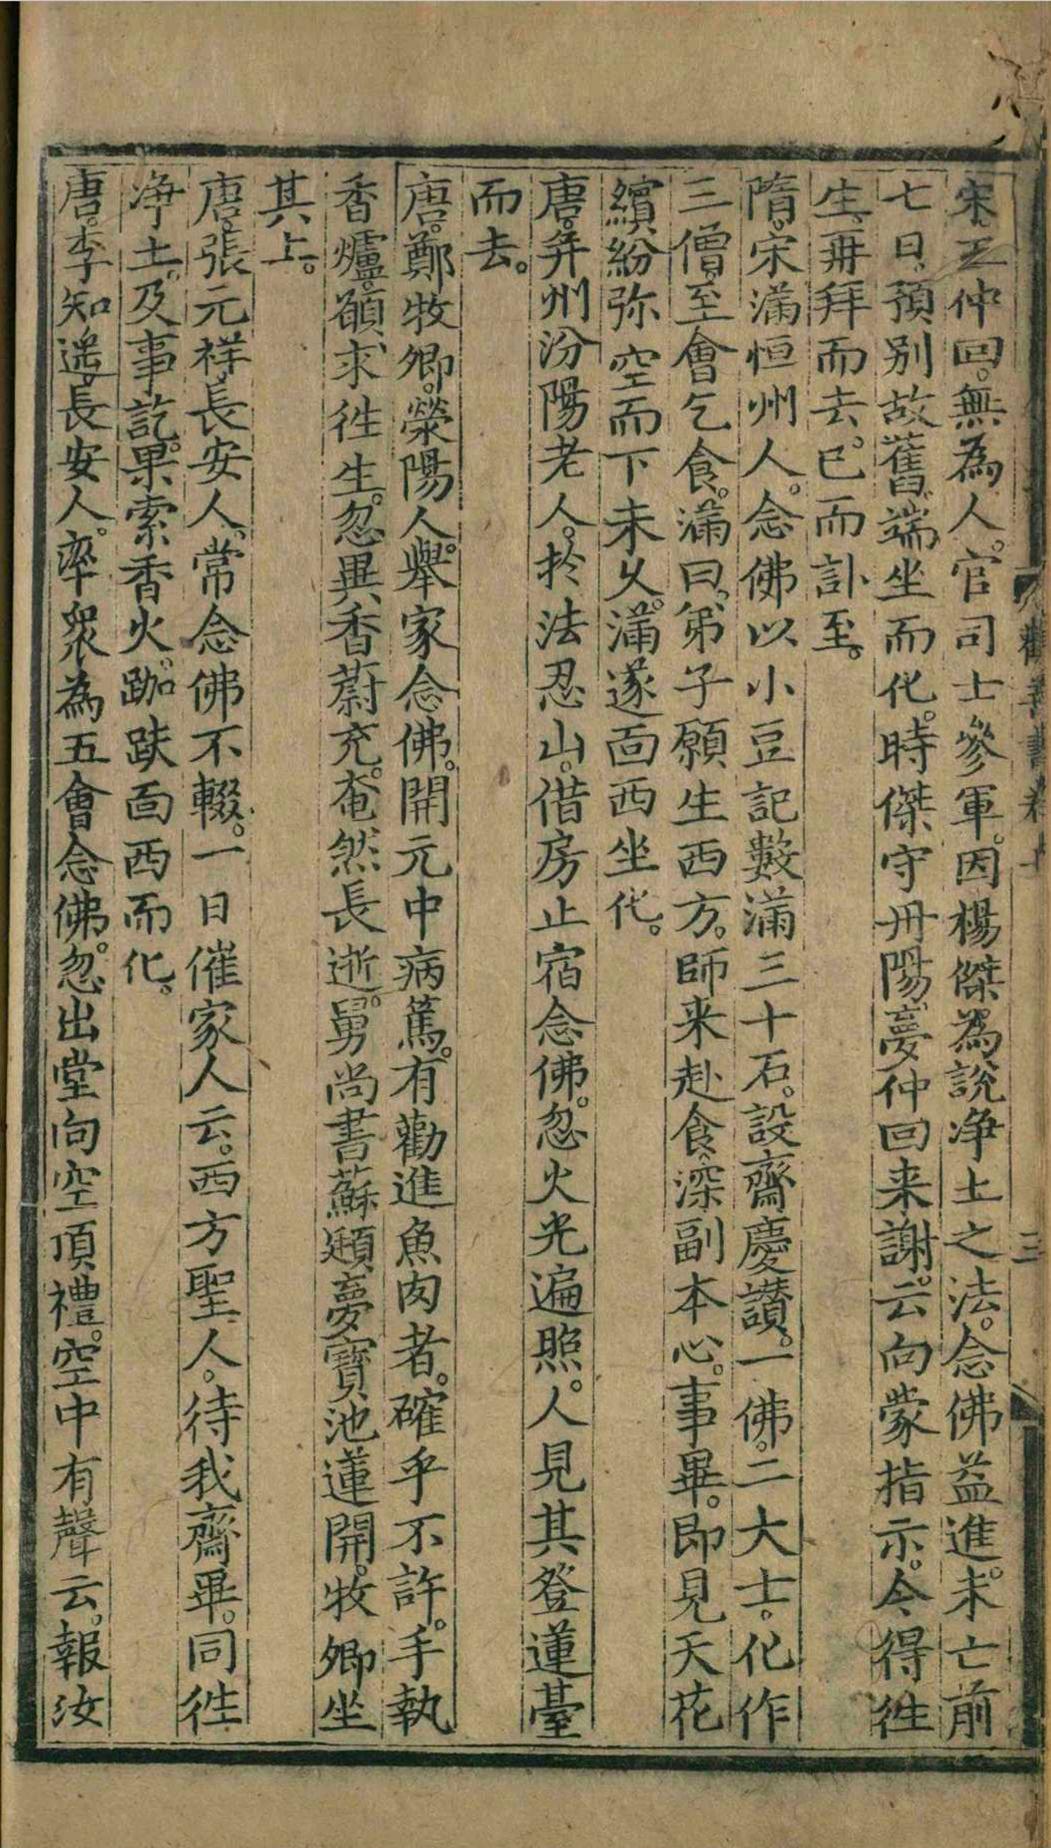 宋王仲回。無為人。官司士參軍。因楊傑為說淨土之法。念佛益進。未亡前
七日。預別故舊。端坐而化。時傑守丹陽。夢仲回来謝。云向蒙指示。今得徃
生。再拜而去。已而訃至。
隋。宋滿恒州人。念佛以小豆記數滿三十石。設齋慶讚。一佛。二大士。化作
三僧。至會乞食。滿曰。弟子願生西方。師来赴食。深副本心。事畢。即見天花
繽紛弥空而下未久。滿遂面西坐化。
唐。并州汾陽老人。扵法忍山。借房止宿念佛。忽火光遍照。人見其登蓮臺
而去。
唐。鄭牧卿。滎陽人。舉家念佛。開元中病篤。有勸進魚肉者。確乎不許。手執
香爐。願求徃生。忽異香蔚充。奄然長逝。舅尚書蘇頲夢寳池蓮開。牧卿坐
其上。
唐。張元祥。長安人。常念佛不輟。一日催家人云。西方聖人。待我齋畢。同徃
净土。及事訖。果索香火。跏趺面西而化。
唐。李知遥。長安人。率衆為五會念佛。忽出堂向空頂禮。空中有聲云。報汝
三